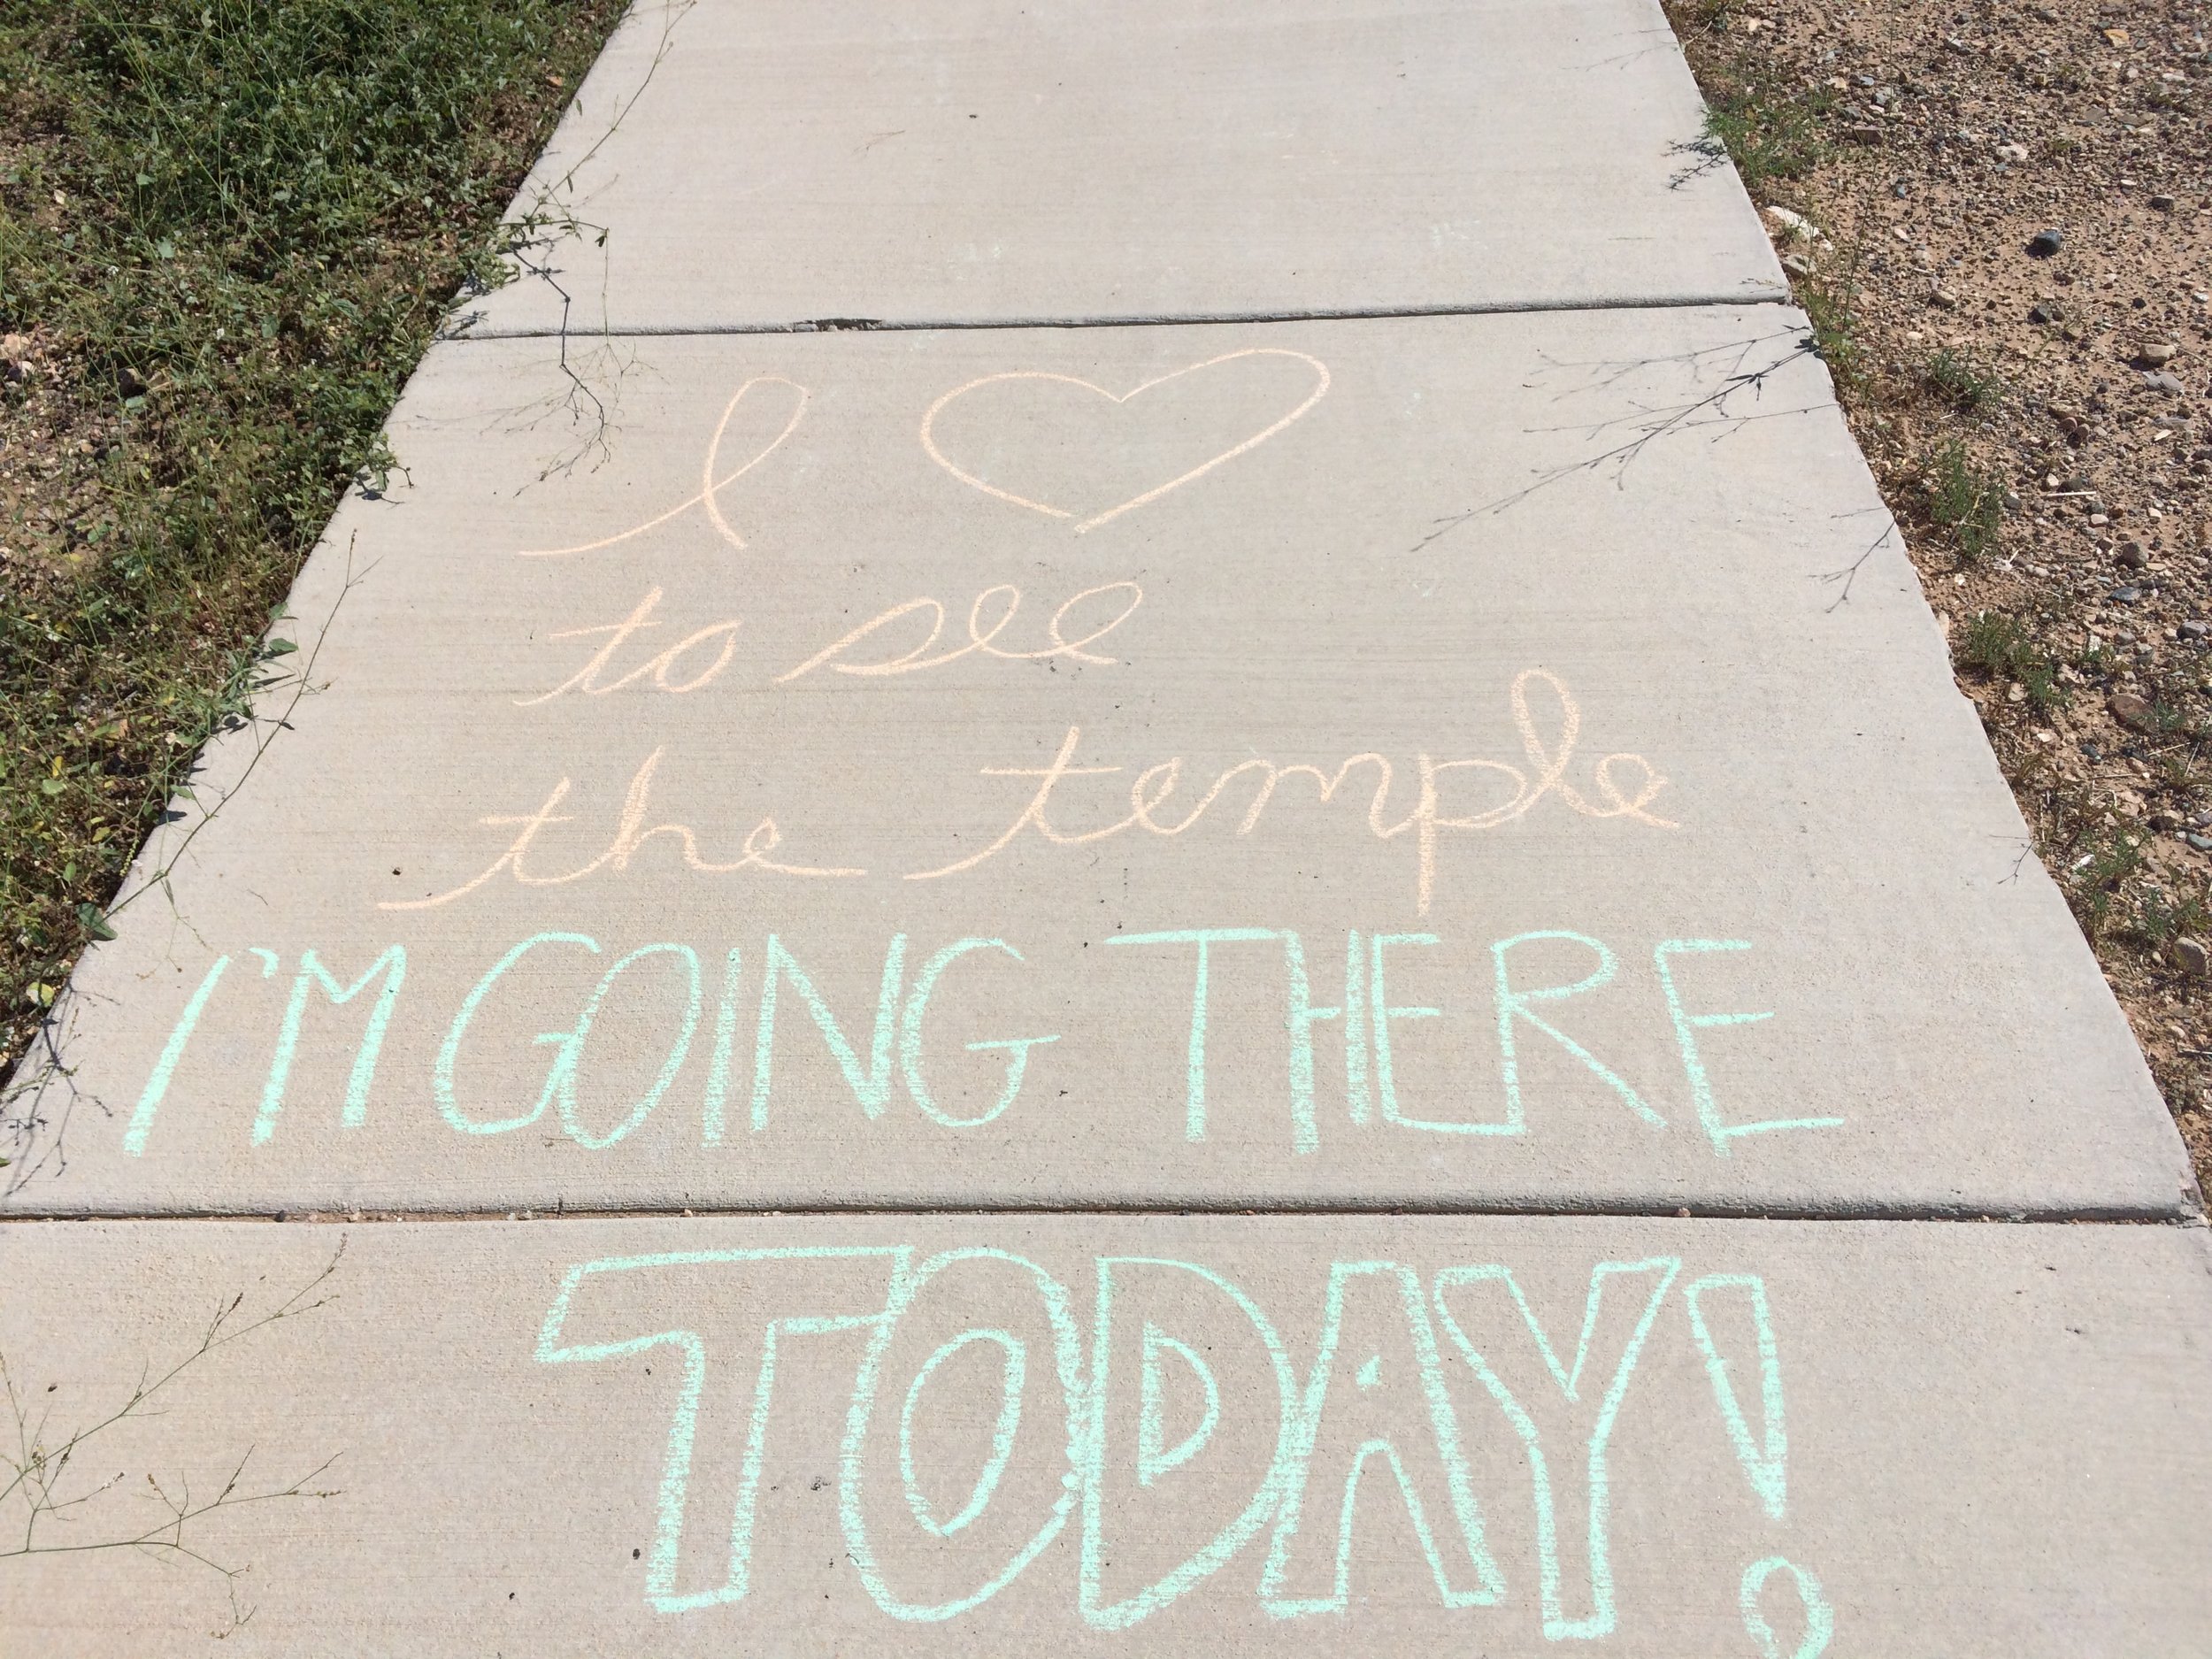 I ♡
to see
the temple
I'M GOING THERE
TODAY!